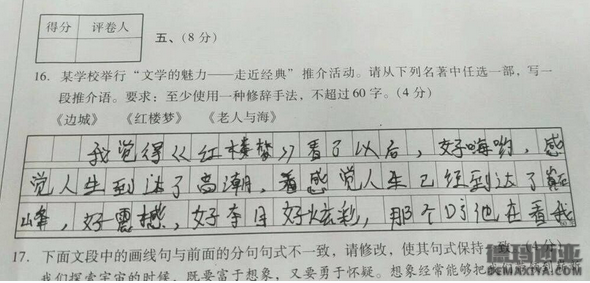 得分 评卷人
五、(8分)
16. 某学校举行“文学的魅力——走近经典”推介活动。请从下列名著中任选一部，写一
段推介语。要求：至少使用一种修辞手法，不超过60字。(4分)
《边城》 《红楼梦》 《老人与海》
我觉得《红楼梦》看了以后，好嗨哟，感
觉人生到达了高潮，看感觉人生已经到达了巅
峰，好震撼，好夺目好炫彩，那个DJ他在看我
17. 下面文段中的画线句与前面的分句句式不一致，请修改，使其句式保持一致。(4分)
我们探索宇宙的时候，既要富于想象，又要勇于怀疑。想象经常能够把
德玛西亚
DEMAXIYA.COM